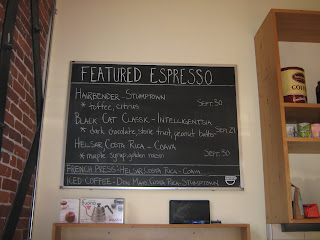 FEATURED ESPRESSO
HAIRBENDER - STUMPTOWN
* toffee, citrus SEPT. 30
BLACK CAT CLASSIC - INTELLIGENTSIA
* dark chocolate, stone fruit, peanut butter SEPT. 29
HELSAR COSTA RICA - COAVA
* maple syrup, golden raisin SEPT. 30
FRENCH PRESS: HELSAR COSTA RICA - COAVA
ICED COFFEE - DON MAYO COSTA RICA - STUMPTOWN